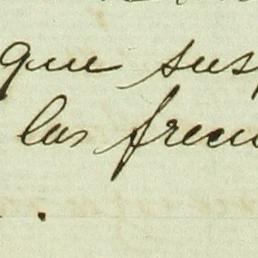 que sus
las frecu